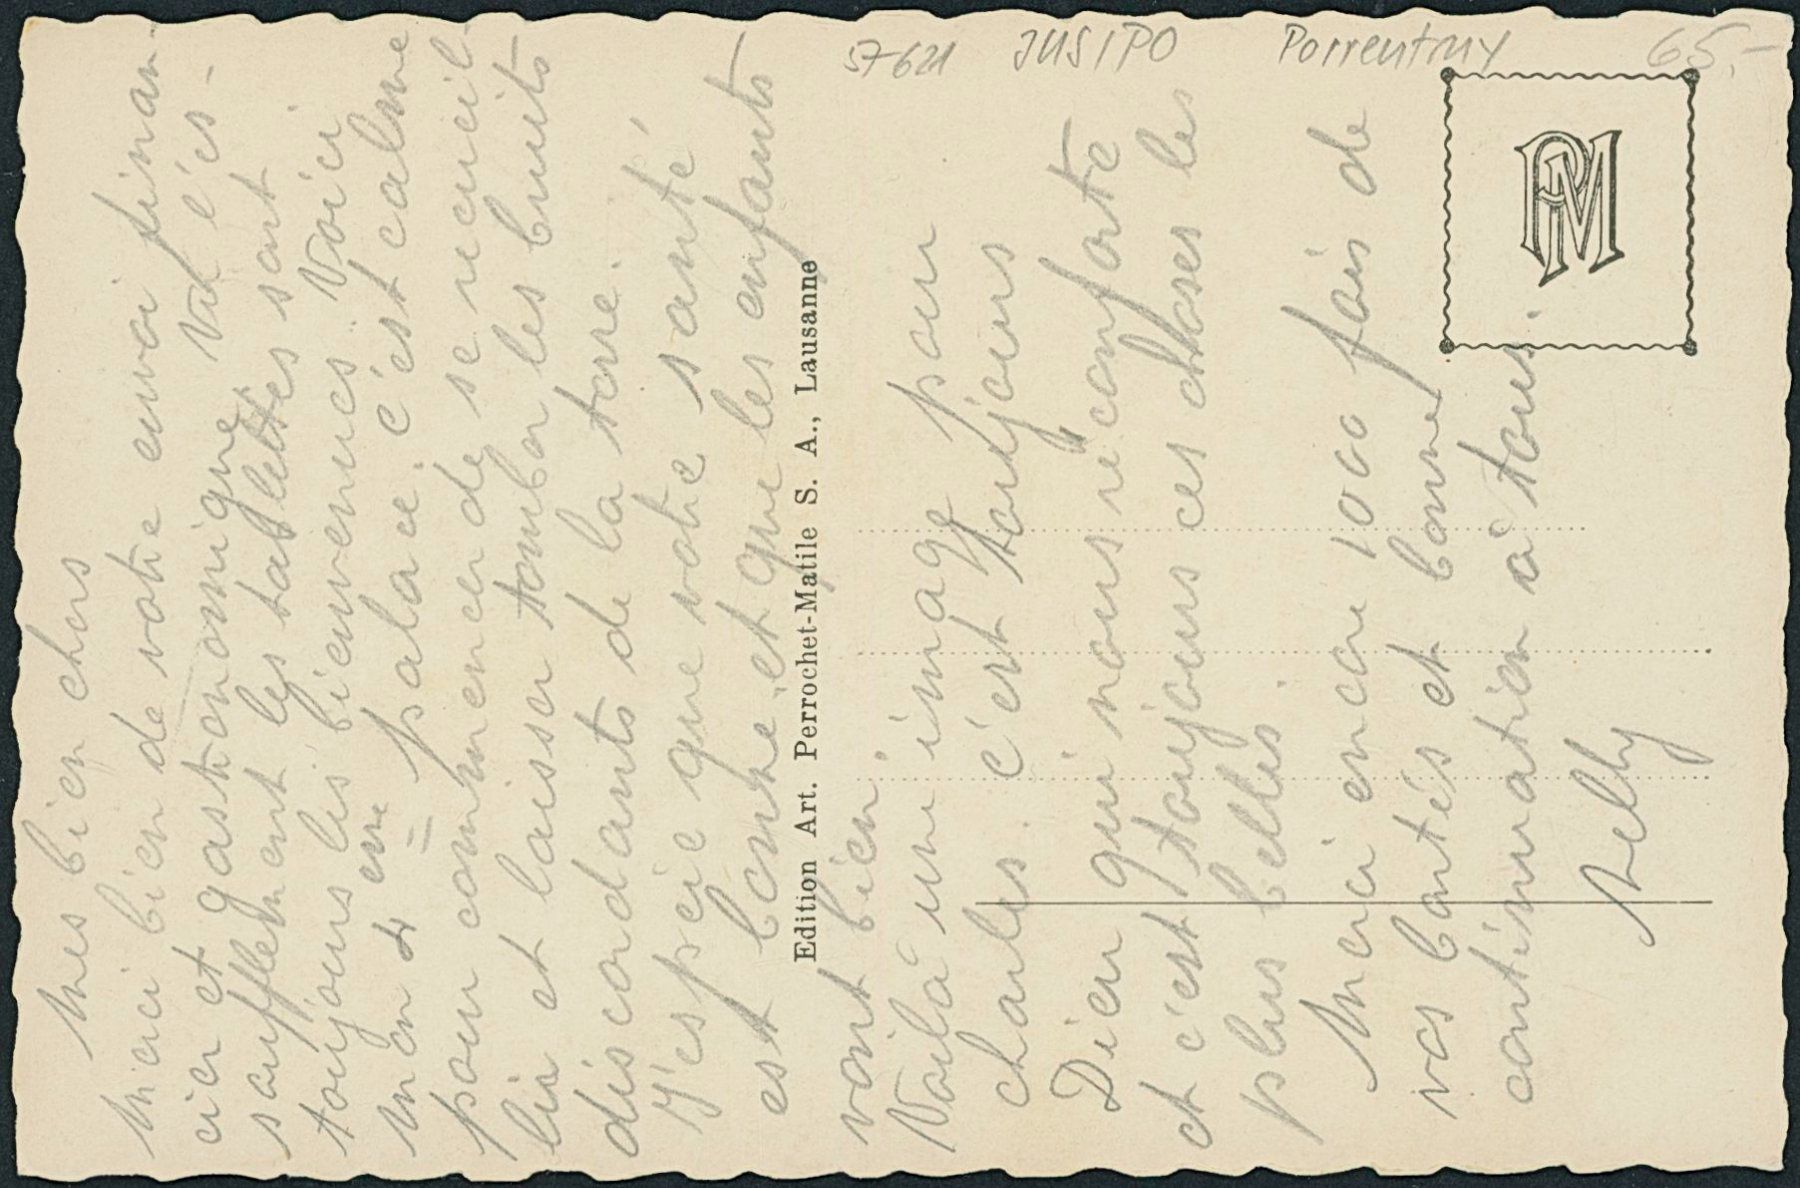 57621 JUSIPO Porrentruy 65.-
PM
Edition Art. Perrochet-Matile S. A., Lausanne
Mes bien chers
Merci bien de votre envoi finan-
cier et gastronomique. Vu l'és-
soufflement les tablettes sont
toujours les bienvenues. Voici
mon 4 eme palace. C'est calme
pour commencer de se recueil-
lir et laisser tomber les bruits
discordants de la terre.
J'espère que votre santé
est bonne et que les enfants
vont bien.
Voilà une image pour
Charles. C'est toujours
Dieu qui nous réconforte
et c'est toujours ces choses les
plus belles.
Merci encore 1000 fois de
vos bontés et bonne
continuation à tous.
Nelly